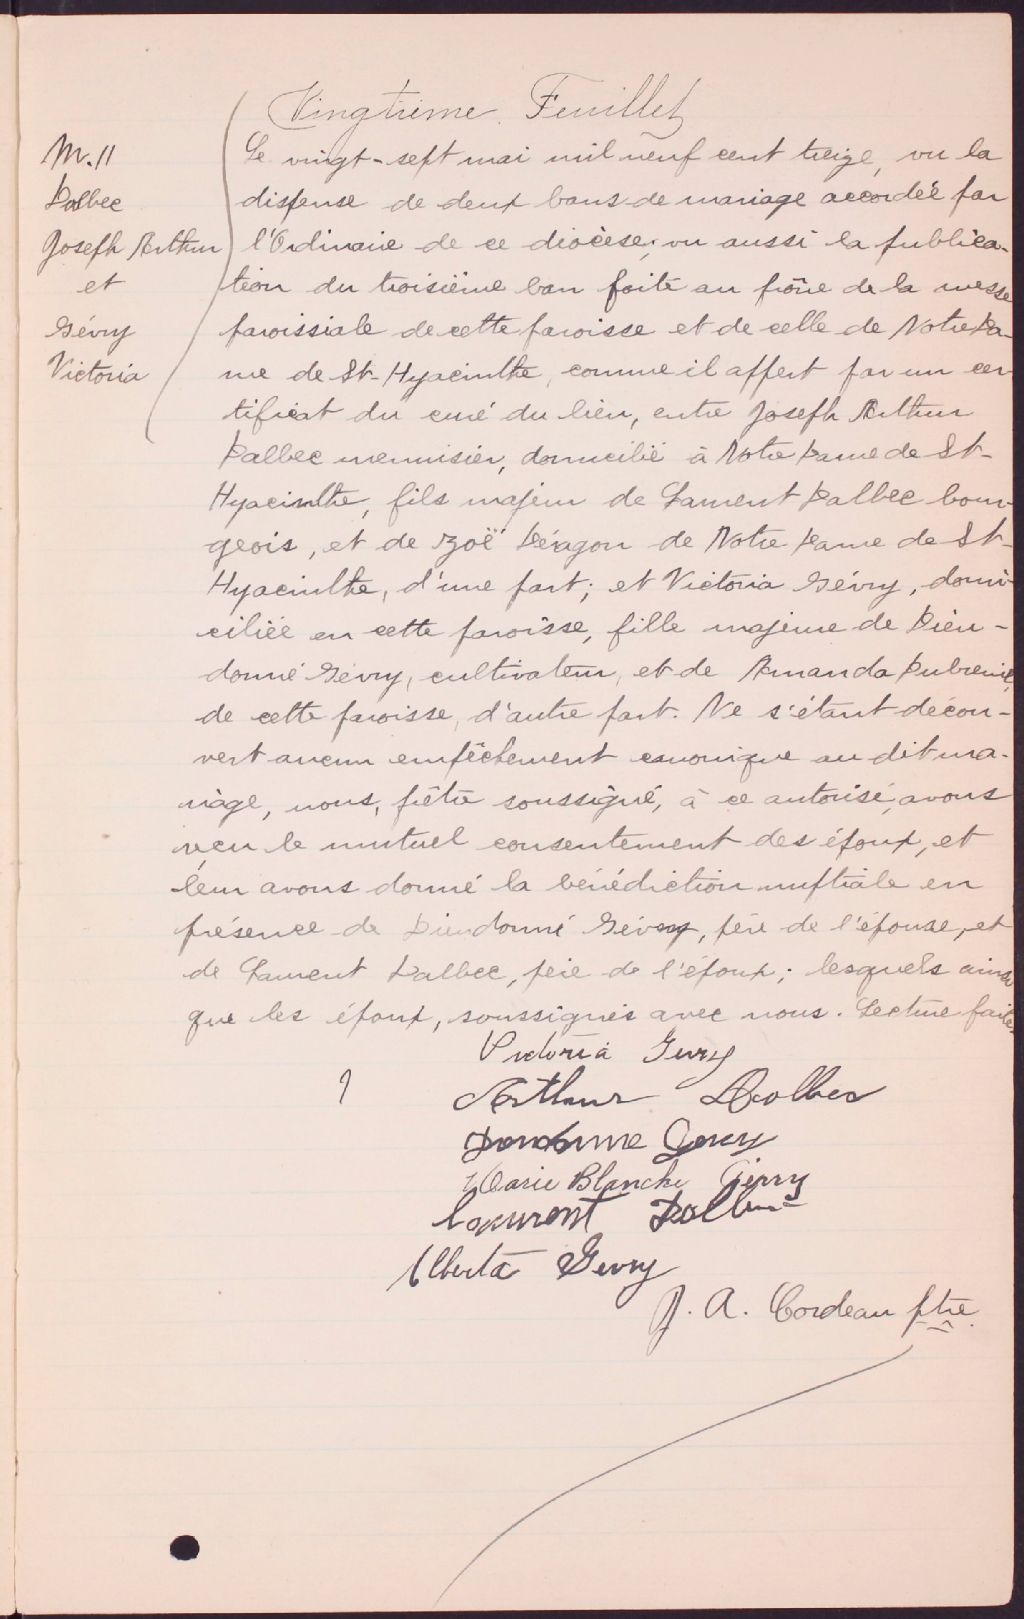 Vingtième Feuillet
M. 11
Dalbec
Joseph Arthur
et
Gévry
Victoria
Le vingt-sept mai mil neuf cent treize, vu la
dispense de deux bans de mariage accordée par
l'Ordinaire de ce diocèse; vu aussi la publica-
tion du troisième ban faite au prône de la messe
paroissiale de cette paroisse et de celle de Notre Da-
me de St-Hyacinthe, comme il appert par un cer
tificat du curé du lieu, entre Joseph Arthur
Dalbec menuisier, domicilié à Notre Dame de St-
Hyacinthe, fils majeur de Laurent Dalbec bour-
geois, et de Zoë Déragon de Notre Dame de St-
Hyacinthe, d'une part; et Victoria Gévry, domi-
ciliée en cette paroisse, fille majeure de Dieu-
donné Gévry, cultivateur, et de Amanda Dubreuil,
de cette paroisse, d'autre part. Ne s'étant décou-
vert aucun empêchement canonique au dit ma-
riage, nous, prêtre soussigné, à ce autorisé, avons
reçu le mutuel consentement des époux, et
leur avons donné la bénédiction nuptiale en
présence de Dieudonné Gévry, père de l'épouse, et
de Laurent Dalbec, père de l'époux; lesquels ainsi
que les époux, soussignés avec nous. Lecture faite.
Victoria Gevry
Arthur Dalbec
Gevry
Marie Blanche Gévry
Laurent Dalbec
Alberta Gevry
J. A. Cordeau ptre